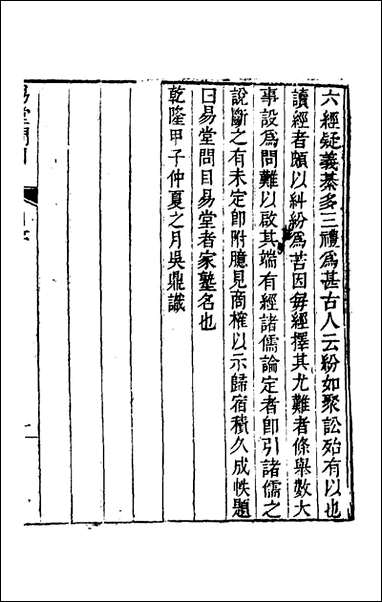 六經疑義綦多三禮爲甚古人云紛如聚訟殆有以也
讀經者頗以糾紛爲苦因每經擇其尤難者條舉數大
事設爲問難以啟其端有經諸儒論定者卽引諸儒之
說斷之有未定卽附臆見商榷以示歸宿積久成帙題
曰易堂問目易堂者家塾名也
乾隆甲子仲夏之月吳鼎識
易堂問目